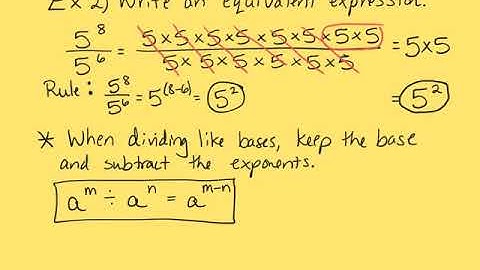 Ex 2) Write an equivalent expression.
5^8/5^6 = 5×5×5×5×5×5×5×5/5×5×5×5×5×5 = 5×5
Rule: 5^8/5^6 = 5^(8-6) = 5^2 = 5^2
* When dividing like bases, keep the base
and subtract the exponents.
a^m ÷ a^n = a^m-n